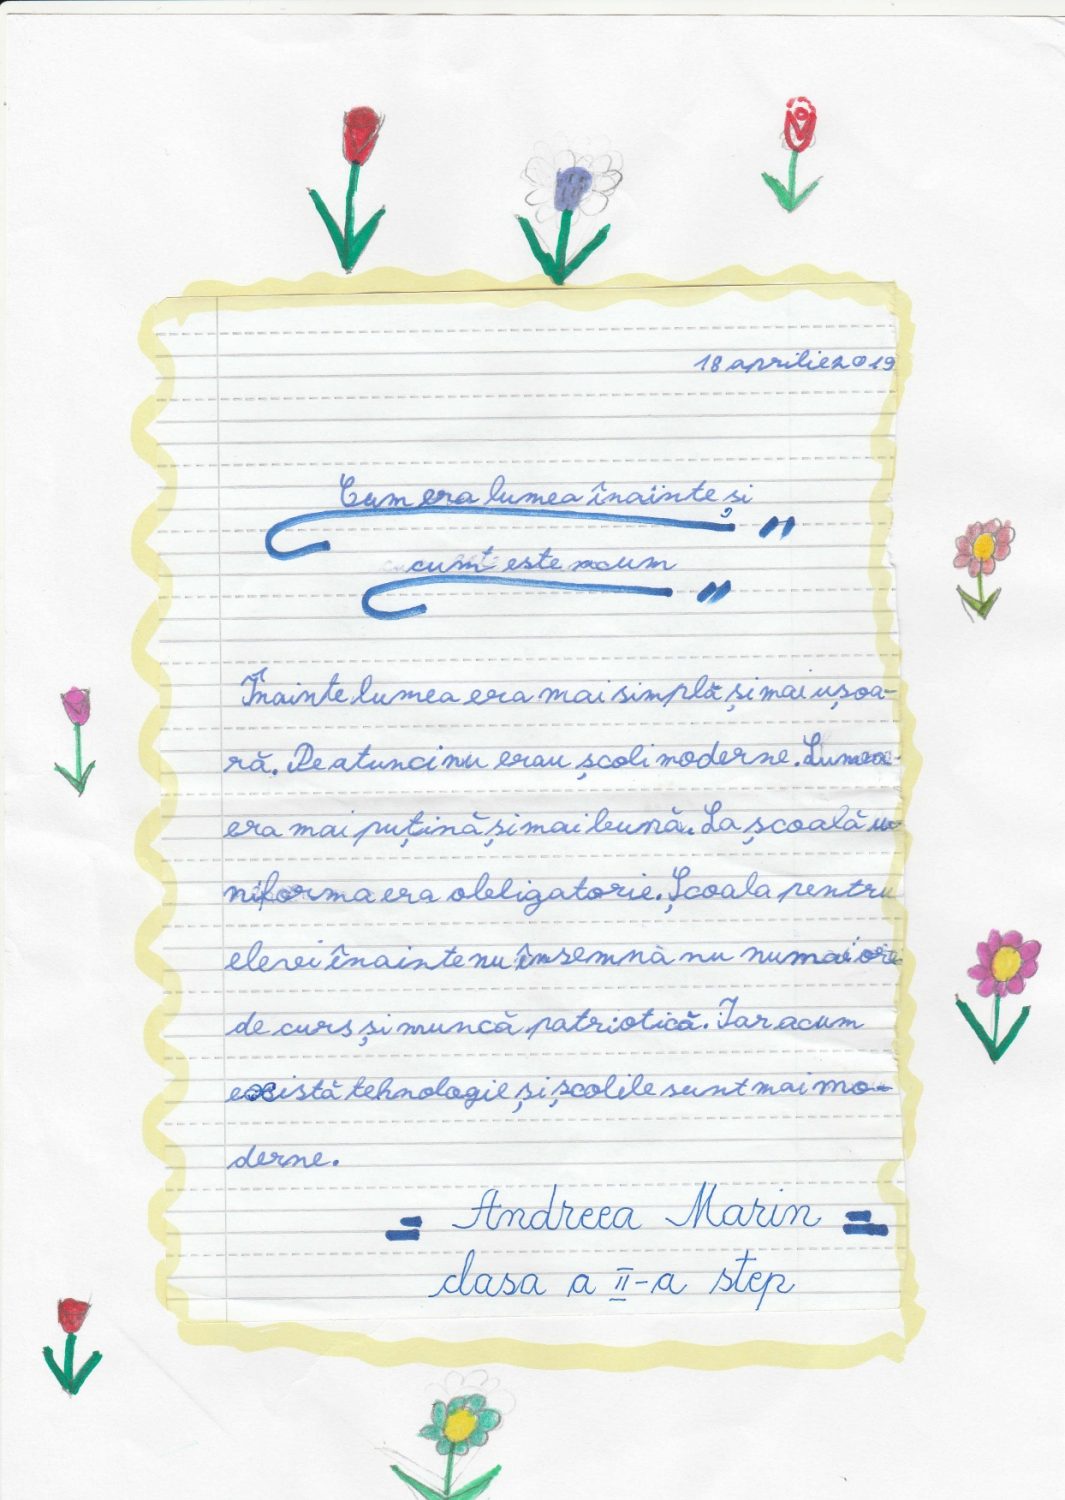 18 aprilie 2019
Cum era lumea înainte și
cum este acum
Înainte lumea era mai simplă și mai ușoa-
ră. Pe atunci nu erau școli moderne. Lumea
era mai puțină și mai bună. La școală u-
niforma era obligatorie. Școala pentru
elevi înainte nu însemnà nu numai ore
de curs și muncă patriotică. Iar acum
există tehnologie și școlile sunt mai mo-
derne.
Andreea Marin
clasa a II-a step